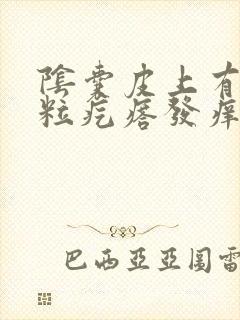 陰囊皮上有
粒疙瘩發癢
巴西亞亞圖雷